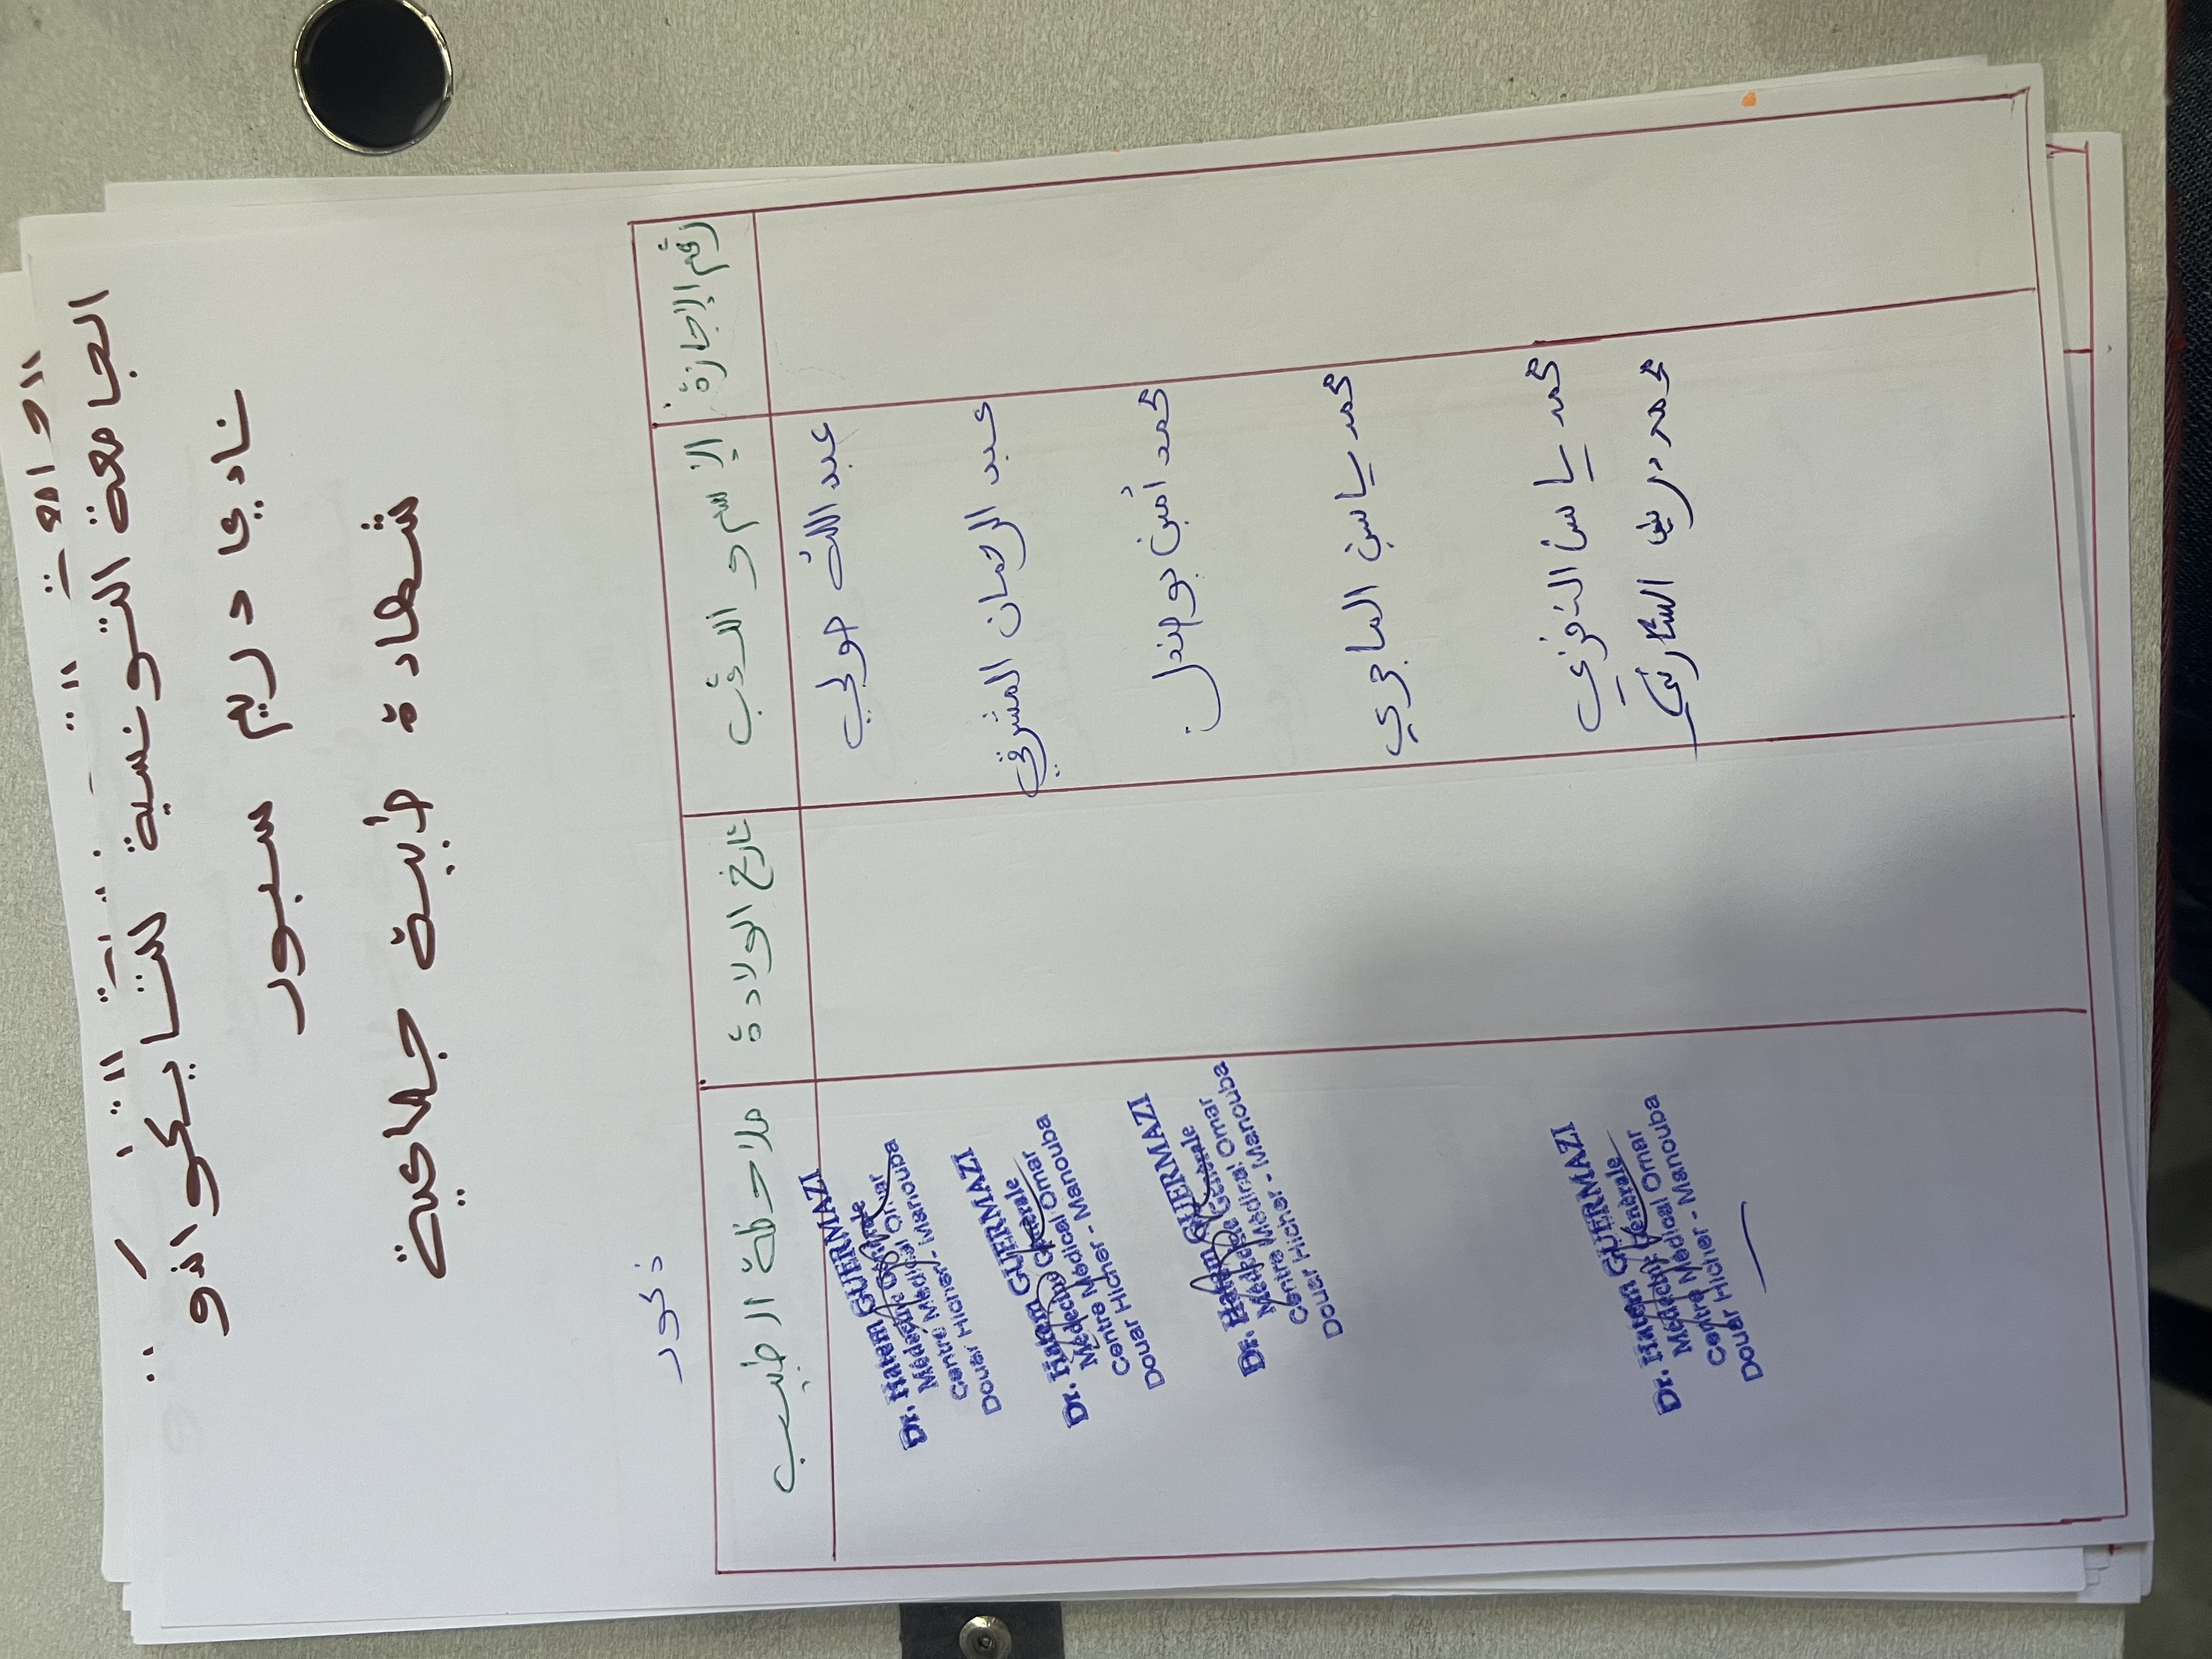 الجامعة التونسية للتايكواندو
نادي دريم سبور
شهادة طبية جماعية
ذكور
رقم الإجازة
الإسم و اللقب
تاريخ الولادة
ملاحظة الطبيب
عبد الله حولي
Dr. Hatem GUERMAZI
Médecine Générale
Centre Médical Omar
Douar Hicher - Manouba
عبد الرحمان المشرقي
Dr. Hatem GUERMAZI
Médecine Générale
Centre Médical Omar
Douar Hicher - Manouba
محمد أمين بوهندل
Dr. Hatem GUERMAZI
Médecine Générale
Centre Médical Omar
Douar Hicher - Manouba
محمد ياسين الماجري
محمد ياسين النفزي
محمد دريس
Dr. Hatem GUERMAZI
Médecine Générale
Centre Médical Omar
Douar Hicher - Manouba